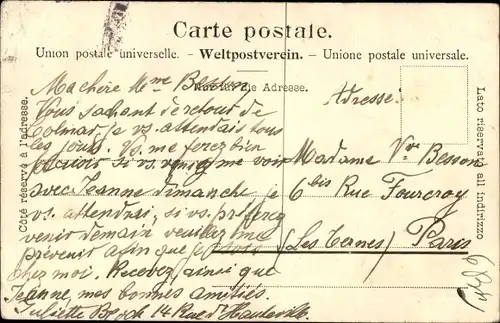 Carte postale.
Union postale universelle. - Weltpostverein. - Unione postale universale.
Nur für die Adresse.
Côté réservé à l'adresse.
Lato riservato all indirizzo
Ma chère Mme Besson
Vous sachant de retour de
Colmar je vs. attendais tous
les jours. Vs. me ferez bien
plaisir si vs. venez me voir
avec Jeanne dimanche, je
vs. attendrai, si vs. préférez
venir demain veuillez me
prévenir afin que je sois
chez moi. Recevez ainsi que
Jeanne, mes bonnes amitiés.
Juliette Bloch 14 Rue d'Hauteville.
Adresse:
Madame Vve Besson
6 bis Rue Fourcroy
(Les Ternes) Paris